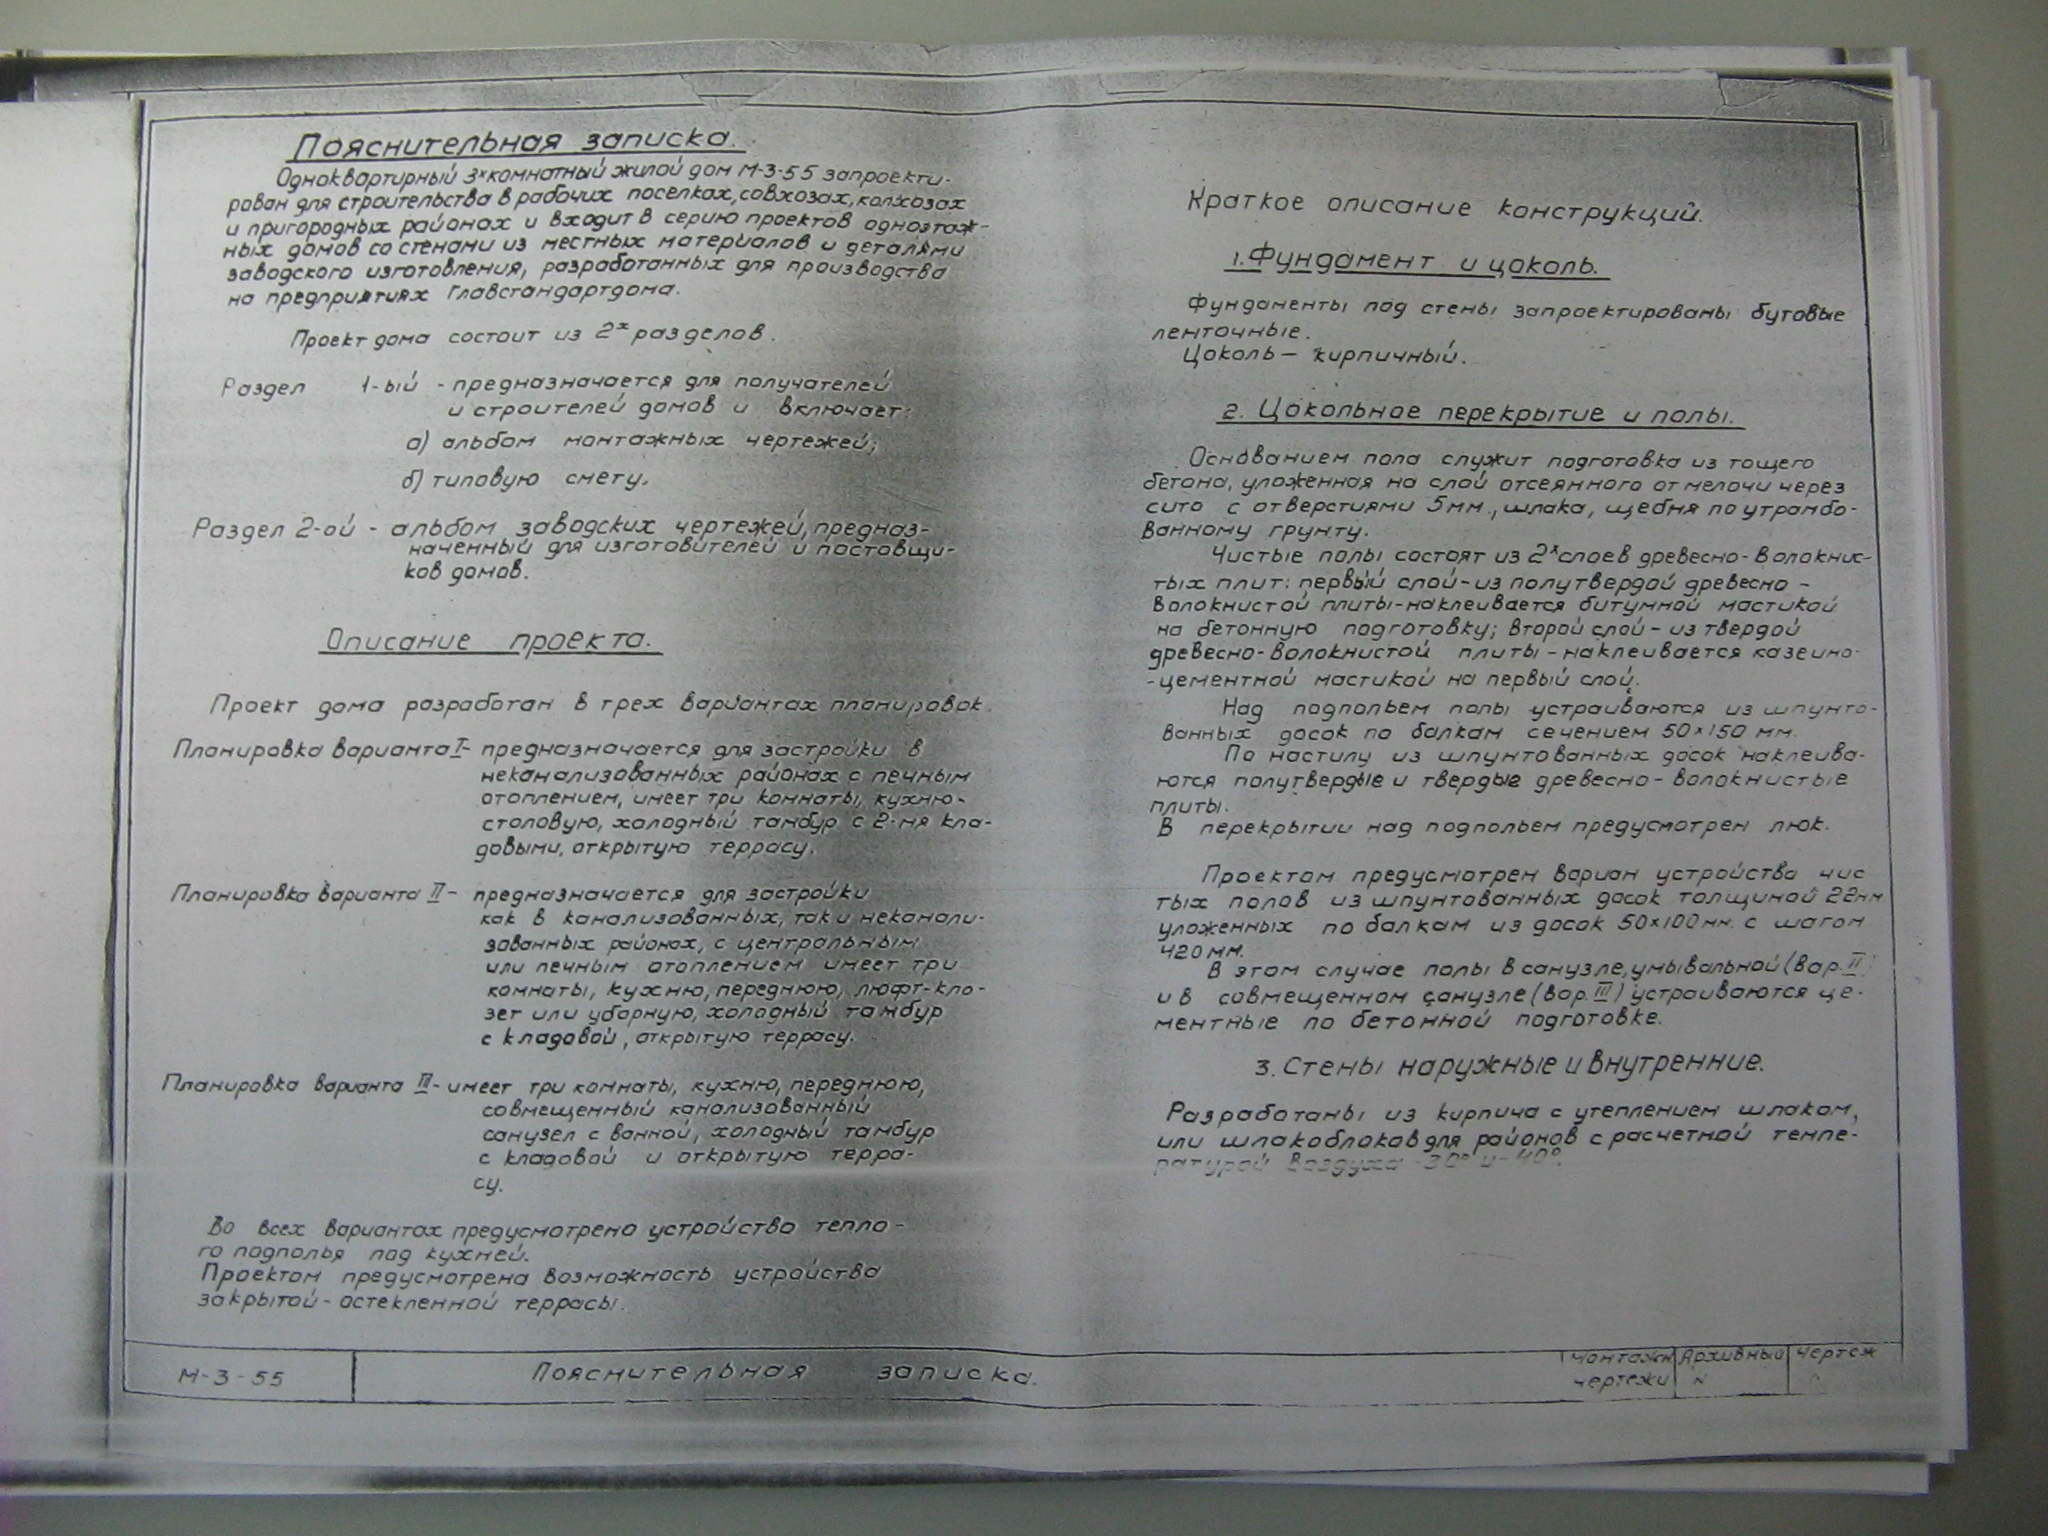 Пояснительная записка.
Одноквартирный 3х комнатный жилой дом М-3-55 запроекти-
рован для строительства в рабочих поселках, совхозах, колхозах
и пригородных районах и входит в серию проектов одноэтаж-
ных домов со стенами из местных материалов и деталями
заводского изготовления, разработанных для производства
на предприятиях Главстандартдома.
Проект дома состоит из 2х разделов.
Раздел 1-ый - предназначается для получателей
и строителей домов и включает:
а) альбом монтажных чертежей;
б) типовую смету.
Раздел 2-ой - альбом заводских чертежей, предназ-
наченный для изготовителей и поставщи-
ков домов.
Описание проекта.
Проект дома разработан в трех вариантах планировок.
Планировка варианта I - предназначается для застройки в
неканализованных районах с печным
отоплением, имеет три комнаты, кухню-
столовую, холодный тамбур с 2-мя кла-
довыми, открытую террасу.
Планировка варианта II - предназначается для застройки
как в канализованных, так и неканали-
зованных районах, с центральным
или печным отоплением имеет три
комнаты, кухню, переднюю, люфт-кло-
зет или уборную, холодный тамбур
с кладовой, открытую террасу.
Планировка варианта III - имеет три комнаты, кухню, переднюю,
совмещенный канализованный
санузел с ванной, холодный тамбур
с кладовой и открытую терра-
су.
Во всех вариантах предусмотрено устройство тепло-
го подполья под кухней.
Проектом предусмотрена возможность устройства
закрытой - остекленной террасы.
Краткое описание конструкций.
1. Фундамент и цоколь.
Фундаменты под стены запроектированы бутовые
ленточные.
Цоколь - кирпичный.
2. Цокольное перекрытие и полы.
Основанием пола служит подготовка из тощего
бетона, уложенная на слой отсеянного от мелочи через
сито с отверстиями 5 мм., шлака, щебня по утрамбо-
ванному грунту.
Чистые полы состоят из 2х слоев древесно-волокнис-
тых плит: первый слой - из полутвердой древесно -
волокнистой плиты - наклеивается битумной мастикой
на бетонную подготовку; второй слой - из твердой
древесно-волокнистой плиты - наклеивается казеино-
-цементной мастикой на первый слой.
Над подпольем полы устраиваются из шпунто-
ванных досок по балкам сечением 50×150 мм.
По настилу из шпунтованных досок наклеива-
ются полутвердые и твердые древесно-волокнистые
плиты.
В перекрытии над подпольем предусмотрен люк.
Проектом предусмотрен вариан устройства чис
тых полов из шпунтованных досок толщиной 22мм
уложенных по балкам из досок 50×100 мм. с шагом
420 мм.
В этом случае полы в санузле, умывальной (вар. II)
и в совмещенном санузле (вар. III) устраиваются це-
ментные по бетонной подготовке.
3. Стены наружные и внутренние.
Разработаны из кирпича с утеплением шлаком,
или шлакоблоков для районов с расчетной темпе-
ратурой воздуха -30° и -40°.
М-3-55
Пояснительная записка.
Монтажн Архивный Чертеж
чертежи N